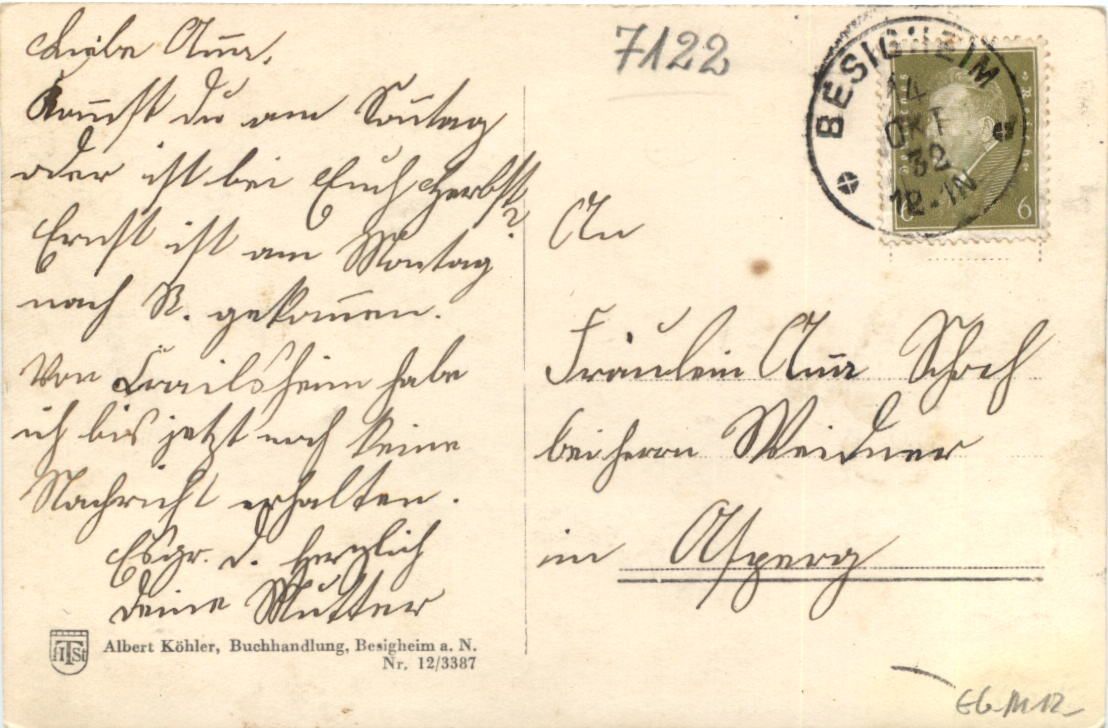 Liebe Anna,
kommst du am Sonntag
oder ist bei Euch Herbst?
Ernst ist am Montag
nach St. gekommen.
Von Crailsheim habe
ich bis jetzt noch keine
Nachricht erhalten.
Es gr. d. herzlich
deine Mutter
Albert Köhler, Buchhandlung, Besigheim a. N.
Nr. 12/3387
7122
BESIGHEIM
14
OKT
32
12-1N
6 6
An
Fräulein Anna Schoch
bei Herrn Weidner
in Asperg